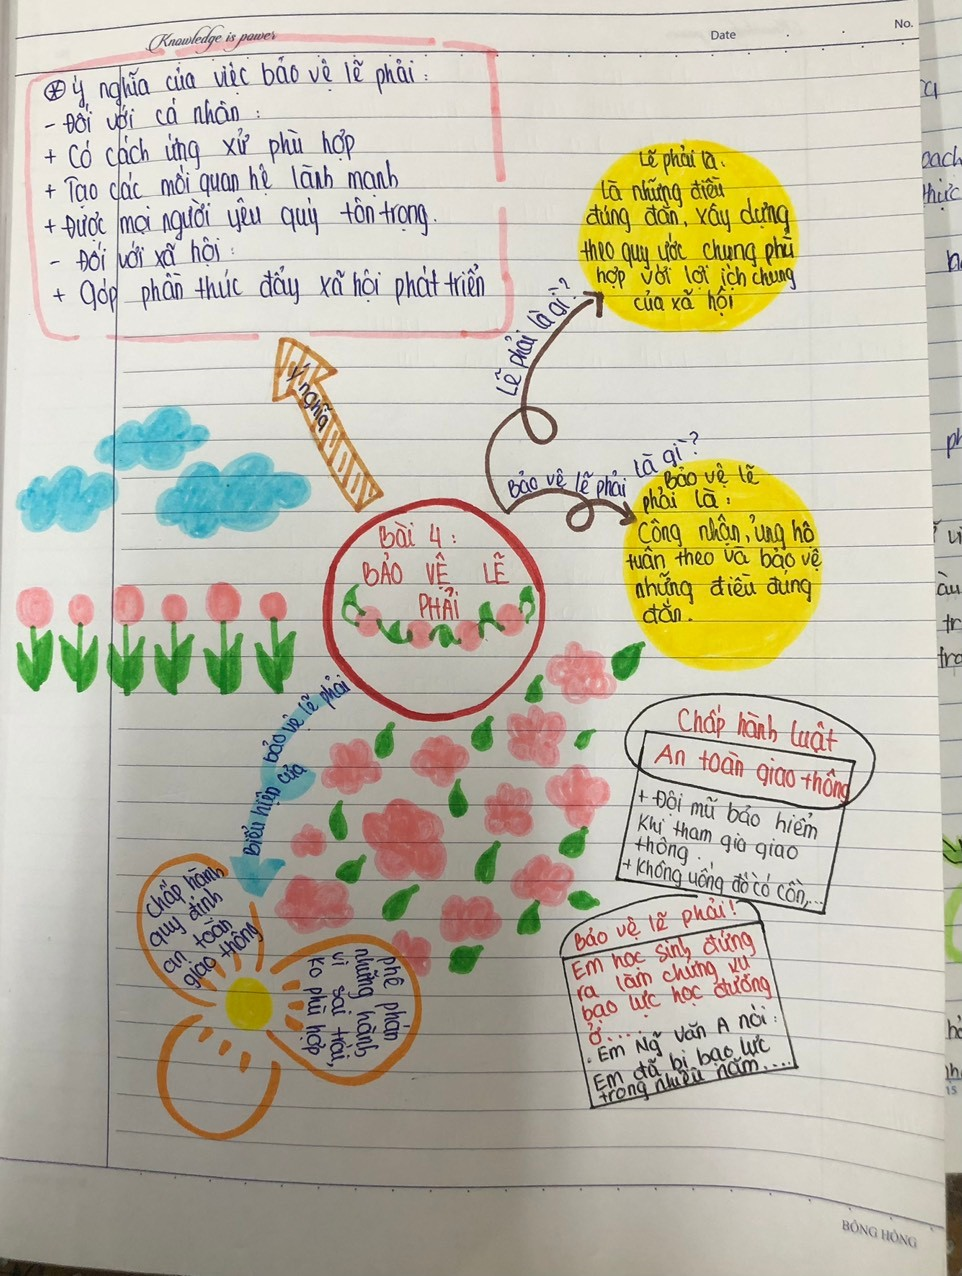 Knowledge is power
Date
No.
* Ý nghĩa của việc bảo vệ lẽ phải:
- Đối với cá nhân:
+ Có cách ứng xử phù hợp
+ Tạo các mối quan hệ lành mạnh
+ Được mọi người yêu quý tôn trọng.
- Đối với xã hội:
+ Góp phần thúc đẩy xã hội phát triển
Ý nghĩa
Lẽ phải là gì?
Lẽ phải là:
là những điều
đúng đắn, xây dựng
theo quy ước chung phù
hợp với lợi ịch chung
của xã hội
Bảo vệ lẽ phải là gì?
Bảo vệ lẽ
phải là:
Công nhận, ủng hộ
tuân theo và bảo vệ
những điều đúng
đắn.
Bài 4:
BẢO VỆ LẼ
PHẢI
Biểu hiện của bảo vệ lẽ phải
Chấp hành
quy định
an toàn
giao thông
phê phán
những hành
vi sai trái,
ko phù hợp
Chấp hành luật
An toàn giao thông
+ Đội mũ bảo hiểm
Khi tham gia giao
thông.
+ Không uống đồ có cồn,...
Bảo vệ lẽ phải!
Em học sinh đứng
ra làm chứng vụ
bạo lực học đường
ở....
. Em Ng̃ Văn A nói:
Em đã bị bạo lực
trong nhiều năm....
BÔNG HỒNG